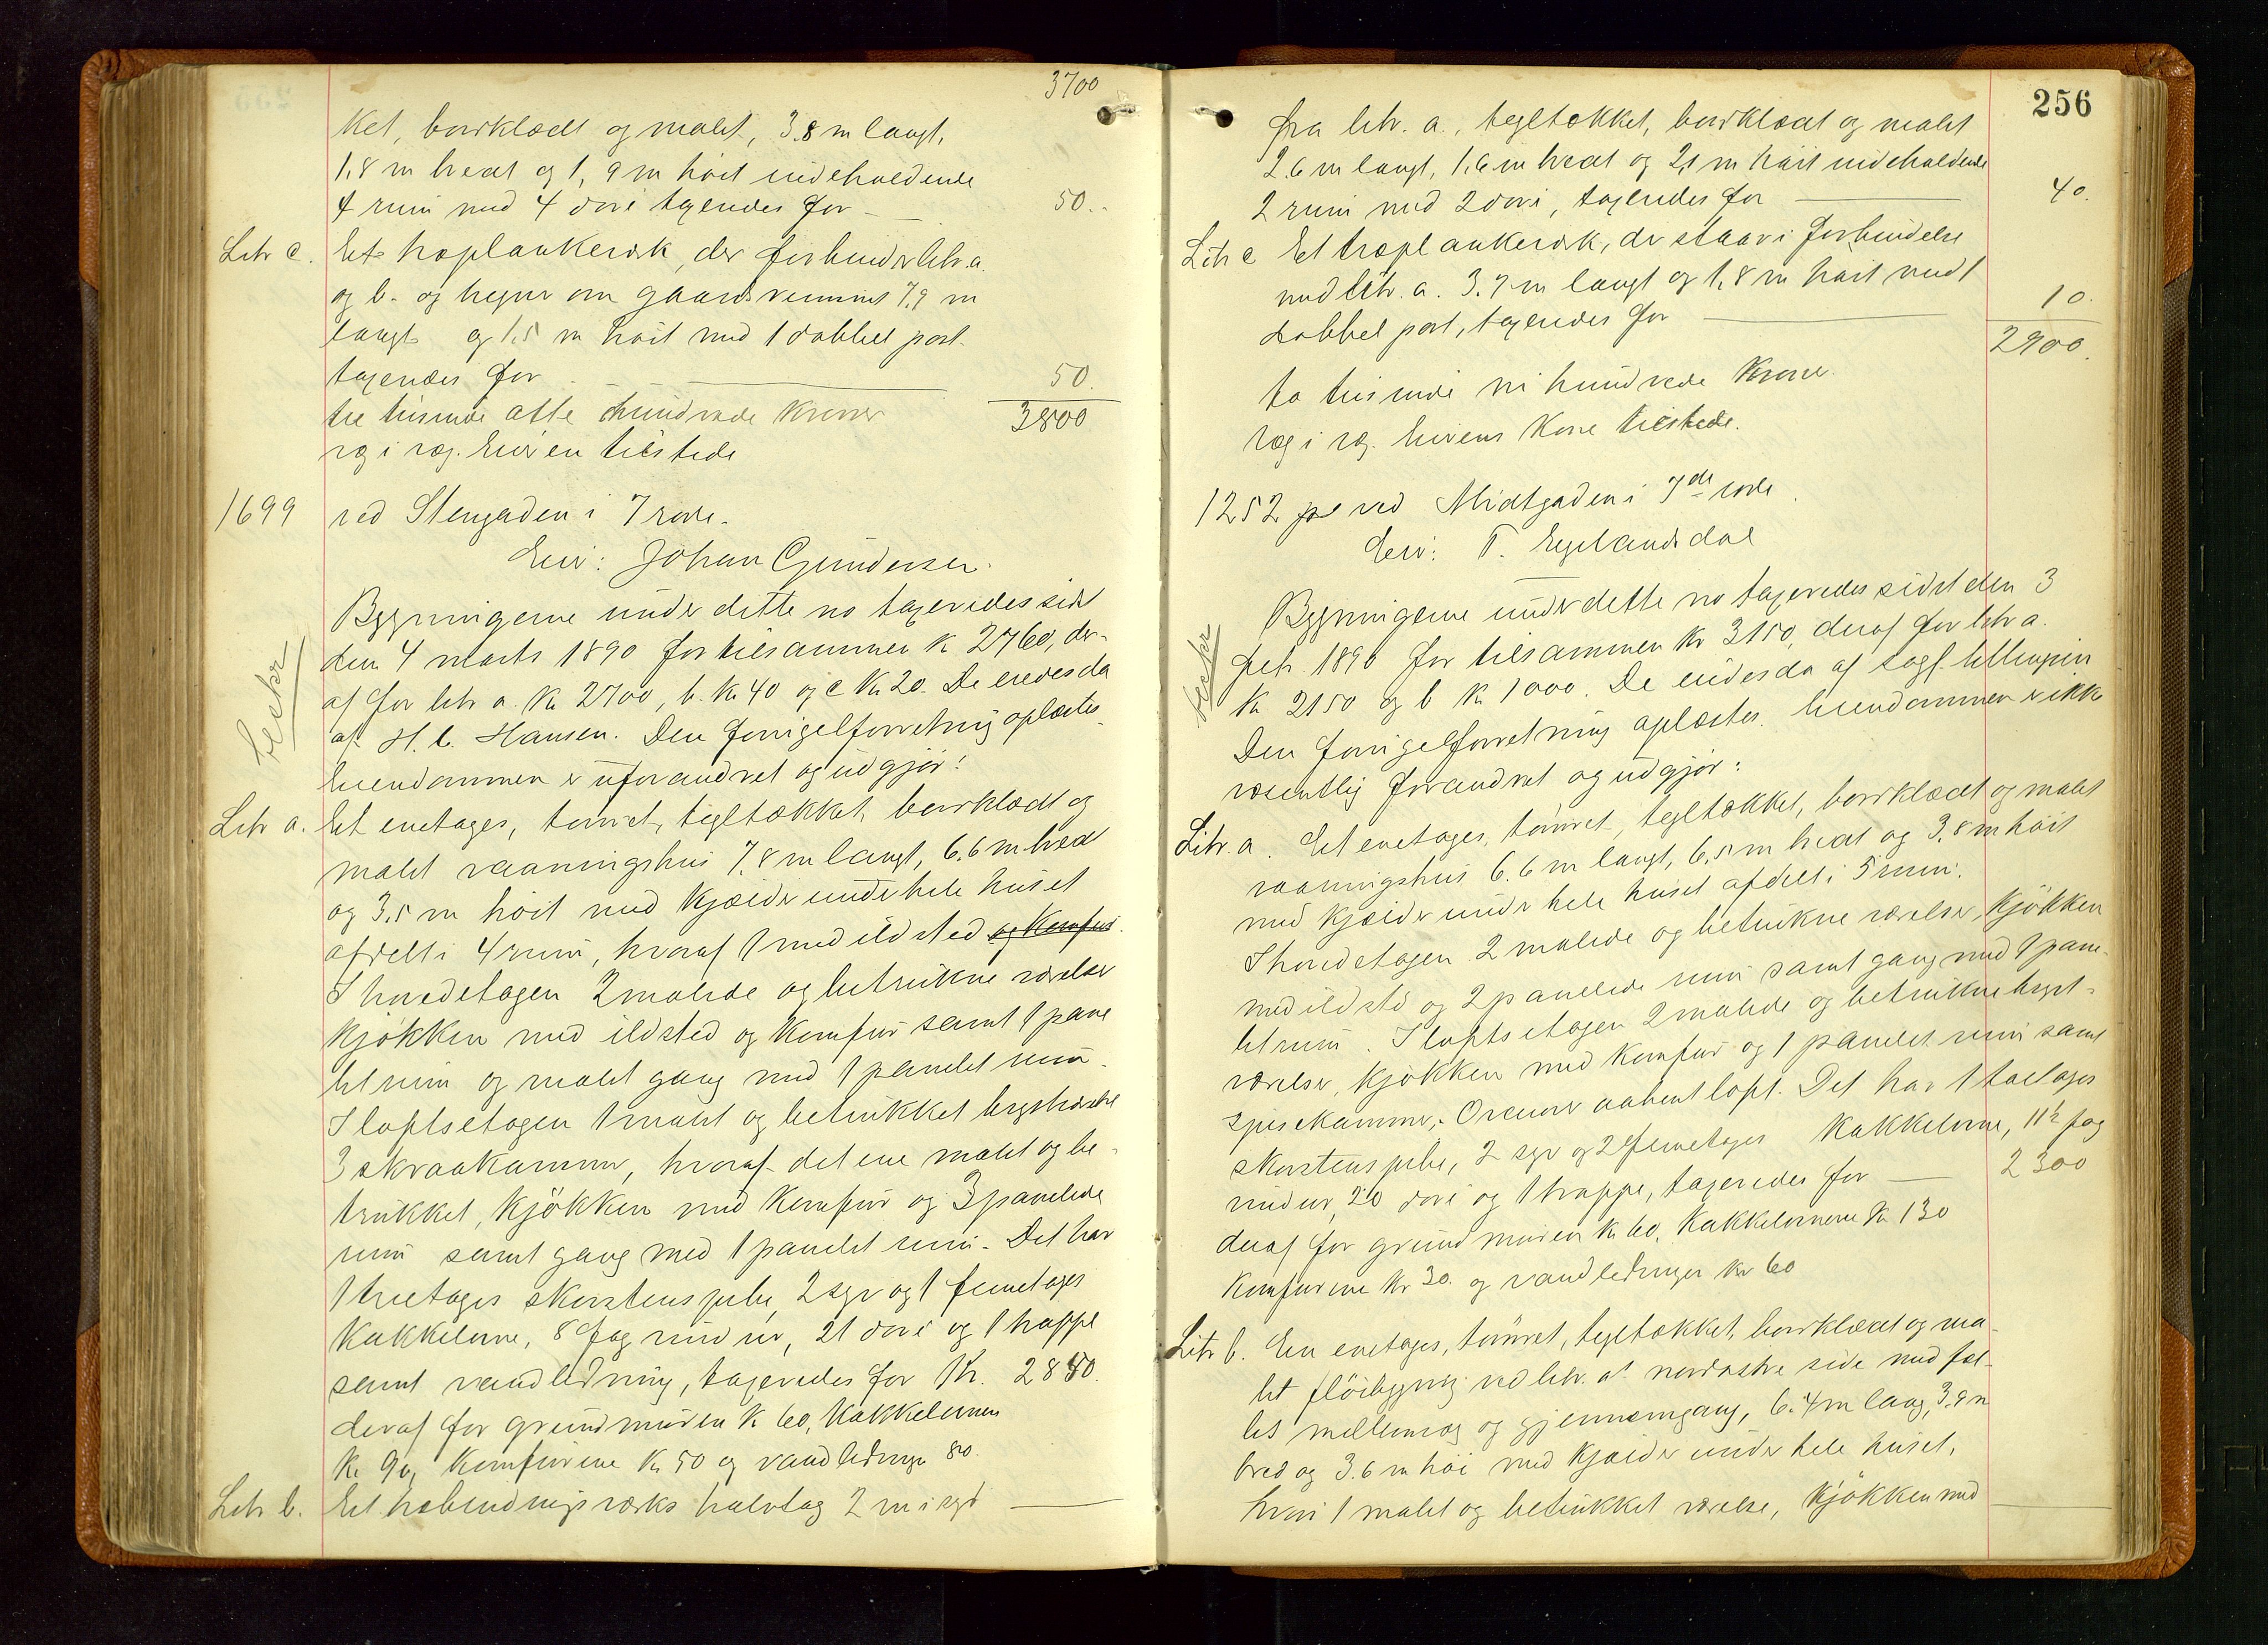 3700
ket, bordklædt og malet, 3.8 m langt,
1,8 m bredt og 1,9 m høit indeholdende
4 rum med 4 döre taxeredes for — 50.
Litr c. Et træplankeværk, der forbinder litr. a.
og b. og hegner om gaardsrummet 7,9 m
langt og 1,5 m höit med 1 dobbel port
taxeredes for — 50.
tre tusinde otte hundrede kroner 3800
og i reg. Eieren tilstede
1699 ved Stengaden i 7 rode.
Eier: Johan Gundersen.
Bygningerne under dette no taxeredes sidst
den 4 marts 1890 for tilsammen k 2760, der-
af for litr a. k 2700, b. k. 40 og c k 20. De eiedes da
af H. C. Hansen. Den forrige forretning oplæstes.
Eiendommen er uforandret og udgjør:
beskr
Litr a. Et enetages, tömret, tegltækket, bordklædt og
malet vaaningshus 7,8 m langt, 6.6 m bredt
og 3,5 m höit med kjælder under hele huset
afdelt i 4 rum, hvoraf 1 med ildsted og komfur.
I hovedetagen 2 malede og betrukne værelser
kjøkken med ildsted og komfur samt 1 pane
let rum og malet gang med 1 panelet rum.
I loftsetagen 1 malet og betrukket kvistværelse
3 skraakammer, hvoraf det ene malet og be-
trukket, kjökken med komfur og 3 panelede
rum samt gang med 1 panelet rum. Det har
1 treetages skorstenspibe, 2 sgr og 1 femetages
kakkelovne, 8 fag vinduer, 21 döre og 1 trappe
samt vandledning, taxeredes for Kr. 2850.
deraf for grundmuren k 60, kakkelovnen
k. 90, komfurerne k. 50 og vandledningen 80.
Litr b. Et træbindingsværks halvtag 2 m i syd —
256
fra litr. a., tegltækket, bordklædt og malet
2.6 m langt, 1.6 m bredt og 2,1 m höit indeholdende
2 rum med 2 döre, taxeredes for — 40.
Litr c Et træplankeværk, der staar i forbindelse
med litr. a. 3.7 m langt og 1,8 m höit med 1
dobbel port, taxeredes for — 10.
2900.
to tusinde ni hundrede kroner.
og i reg. Eierens Kone tilstede.
1252 ved Midtgaden i 7de rode.
Eier: T. Egelandsdal
Bygningerne under dette no taxeredes sidst den 3
febr. 1890 for tilsammen kr 3150, deraf for litr a.
k 2150 og b k 1000. De eiedes da af sagf.
Den forrige forretning oplæstes. Eiendommen er ikke
væsentlig forandret og udgjør:
beskr
Litr. a. Et enetages, tömret, tegltækket, bordklædt og malet
vaaningshus 6.6 m langt, 6,5 m bredt og 3,8 m höit
med kjælder under hele huset afdelt i 5 rum.
I hovedetagen 2 malede og betrukne værelser, kjökken
med ildsted og 2 panelede rum samt gang med 1 pane-
let rum. I loftsetagen 2 malede og betrukne kvist-
værelser, kjøkken med komfur og 1 panelet rum samt
spisekammer, Ovenover aabent loft. Det har 1 toetages
skorstenspibe, 2 sgr og 2 femetages kakkelovne, 11½ fag
vinduer, 20 döre og 1 trappe, taxeredes for — 2300
deraf for grundmuren k 60. kakkelovnene k 130
komfurerne kr 30. og vandledningen kr 60
Litr b. En enetages, tömret, tegltækket, bordklædt og ma-
let flöibygning ved litr. a's nordøstre side med fæl-
les mellemvæg og gjennemgang, 6.4 m lang, 3.9 m
bred og 3.6 m höi med kjælder under hele huset,
hvori 1 malet og betrukket værelse, kjökken med